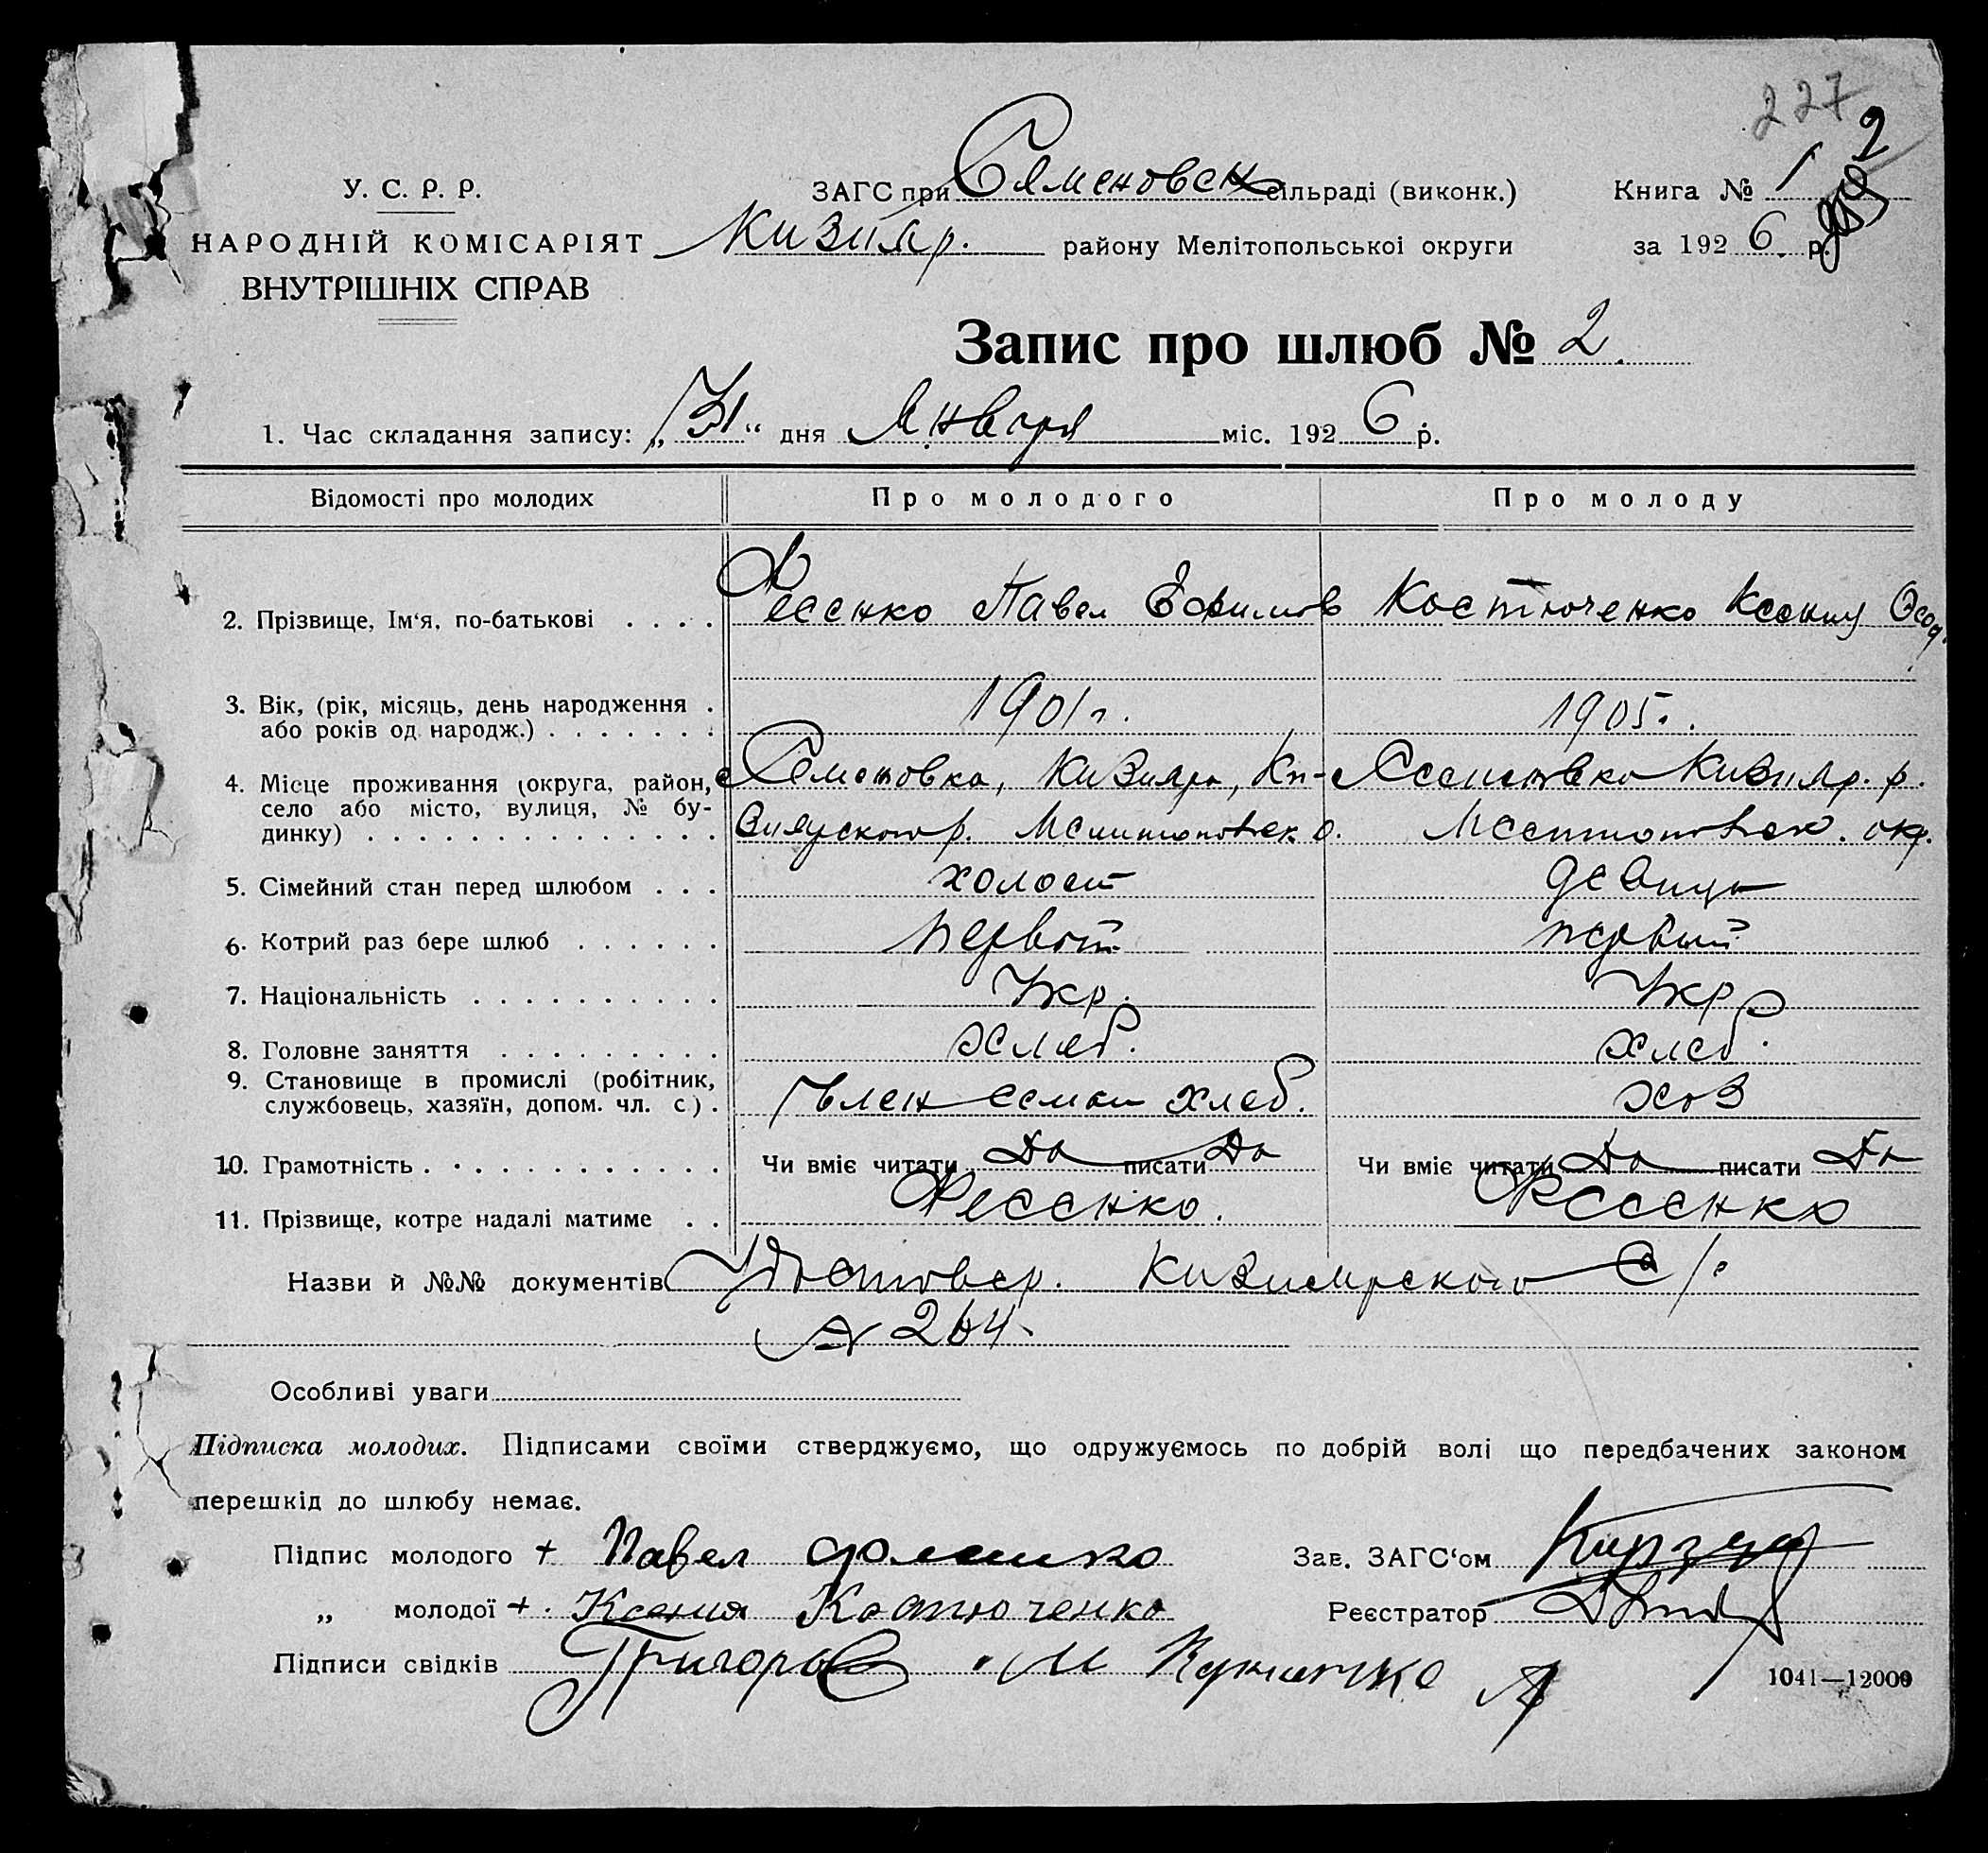 227
2
У. С. Р. Р. ЗАГС при Семеновск сільраді (виконк.) Книга № 1
НАРОДНІЙ КОМІСАРІЯТ Кизияр. району Мелітопольської округи за 1926 р.
ВНУТРІШНІХ СПРАВ
Запис про шлюб № 2.
1. Час складання запису: „31“ дня Января міс. 1926 р.
Відомості про молодих Про молодого Про молоду
2. Прізвище, Ім‘я, по-батькові . . . . Фесенко Павел Ефимов Костюченко Ксения
3. Вік, (рік, місяць, день народження . 1901 г. 1905 г.
або років од народж.) . . . . . . .
4. Місце проживання (округа, район, с Семеновка, Кизияр, Ки- Кизияр. р.
село або місто, вулиця, № бу-
динку) . . . . . . . . . . . . . . зиярского р. Мелитопольск о. Мелитопольск. окр.
5. Сімейний стан перед шлюбом . . . холост девица
6. Котрий раз бере шлюб . . . . . . первый первый
7. Національність . . . . . . . . . . Укр. Укр
8. Головне заняття . . . . . . . . . хлеб. хлеб.
9. Становище в промислі (робітник, член семьи хлеб. хоз
службовець, хазяїн, допом. чл. с) .
10. Грамотність . . . . . . . . . . . . Чи вміє читати Да писати Да Чи вміє читати Да писати Да
11. Прізвище, котре надалі матиме . . Фесенко. Фесенко
Назви й №№ документів Удостовер. Кизиярского С/с
№ 264
Особливі уваги
Підписка молодих. Підписами своїми стверджуємо, що одружуємось по добрій волі що передбачених законом
перешкід до шлюбу немає.
Підпис молодого + Павел Зав. ЗАГС‘ом
„ молодої + Ксения Костюченко Реєстратор
Підписи свідків Григоров М
1041—12000